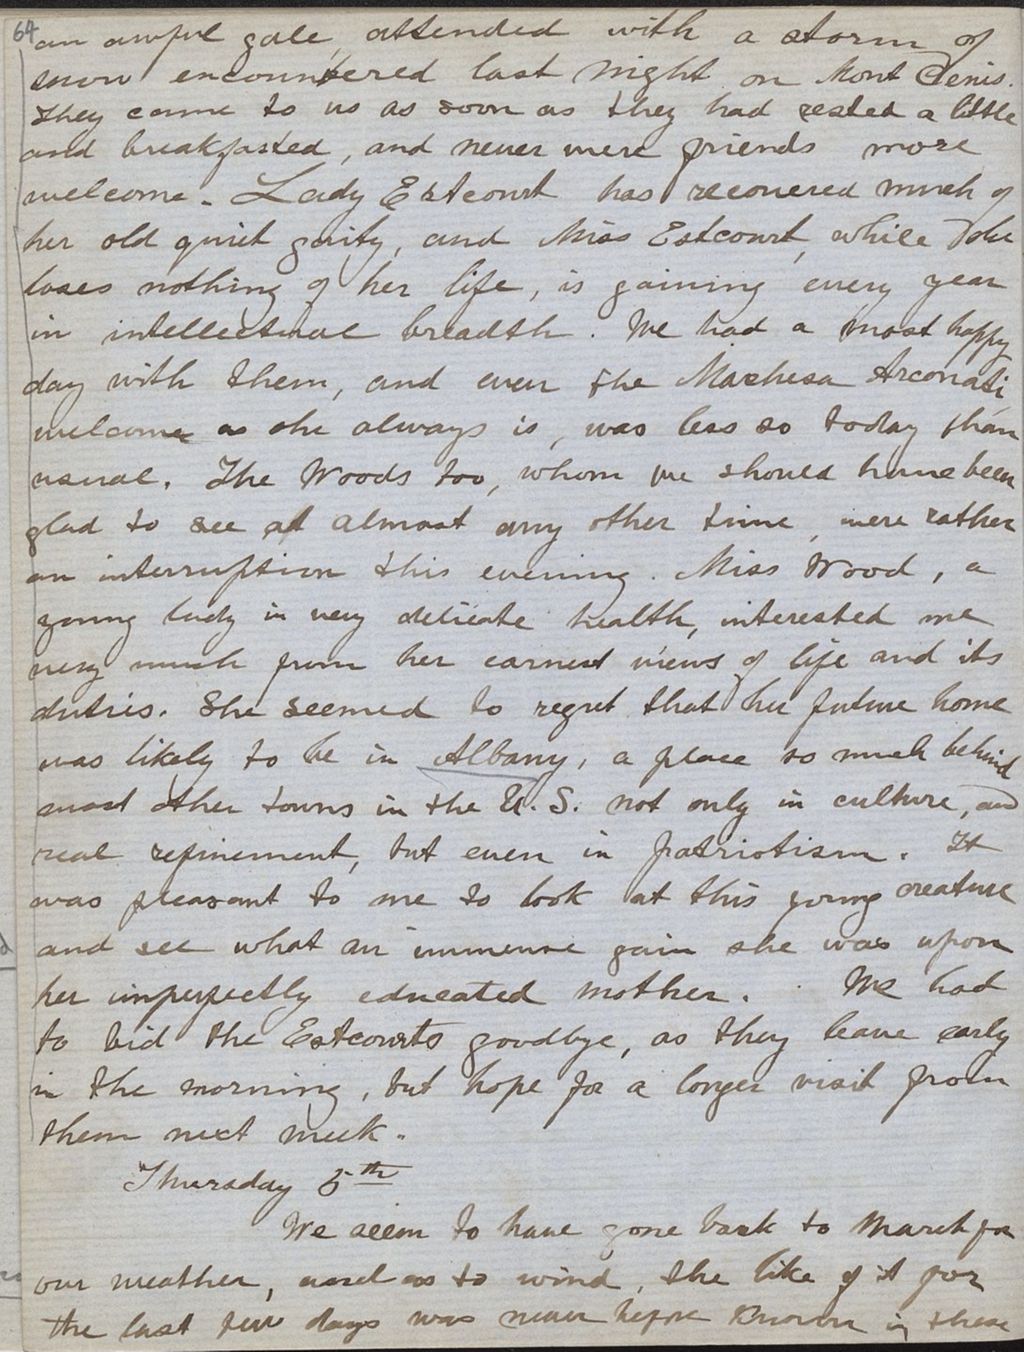 64
an awful gale, attended with a storm of
snow encountered last night on Mont Cenis.
They came to us as soon as they had rested a little
and breakfasted, and never were friends more
welcome. Lady Estcourt has recovered much of
her old quiet gaity, and Miss Estcourt, while she
loses nothing of her life, is gaining every year
in intellectual breadth. We had a most happy
day with them, and even the Marchesa Arconati
welcome as she always is, was less so today than
usual. The Woods too, whom we should have been
glad to see at almost any other time, were rather
an interruption this evening. Miss Wood, a
young lady in very delicate health, interested me
very much from her earnest views of life and its
duties. She seemed to regret that her future home
was likely to be in Albany, a place so much behind
most other towns in the U.S. not only in culture, and
real refinement, but even in patriotism. It
was pleasant to me to look at this young creature
and see what an immense gain she was upon
her imperfectly educated mother. We had
to bid the Estcourts goodbye, as they leave early
in the morning, but hope for a longer visit from
them next week.
Thursday 5th
We seem to have gone back to March for
our weather, and as to wind, the like of it for
the last few days was never before known in these